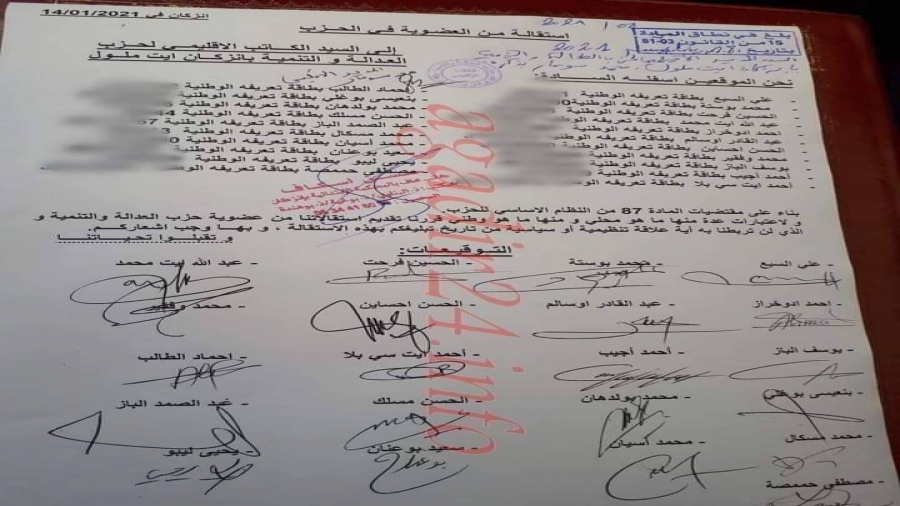 انزكان في 14/01/2021
استقالة من العضوية في الحزب
بلغ في نطاق المادة
15 من القانون 03-81
بتاريخ
إلى السيد الكاتب الاقليمي لحزب
العدالة و التنمية بانزكان ايت ملول
نحن الموقعين اسفله السادة:
- علي السبع بطاقة تعريفه الوطنية
- محمد بوستة بطاقة تعريفه الوطنية
- الحسين فرحت بطاقة تعريفه الوطنية
- عبد الله ايت بطاقة تعريفه الوطنية
- احمد ادوخراز بطاقة تعريفه الوطنية
- عبد القادر اوسالم بطاقة تعريفه الوطنية
- الحسن احساين بطاقة تعريفه الوطنية
- محمد وفقير بطاقة تعريفه الوطنية
- يوسف الباز بطاقة تعريفه الوطنية
- أحمد أجيب بطاقة تعريفه الوطنية
- أحمد ايت سي بلا بطاقة تعريفه
- احماد الطالب بطاقة تعريفه الوطنية
- بنعيسى بوغلي بطاقة تعريفه الوطنية
- محمد بولدهان بطاقة تعريفه الوطنية
- الحسن مسلك بطاقة تعريفه الوطنية
- عبد الصمد الباز بطاقة تعريفه الوطنية
- محمد مسكال بطاقة تعريفه الوطنية
- محمد آسيان بطاقة تعريفه الوطنية
- سعيد بوعنان بطاقة تعريفه الوطنية
- يحيى ليبو بطاقة تعريفه الوطنية
- مصطفى حمصة بطاقة تعريفه
بناء على مقتضيات المادة 87 من النظام الاساسي للحزب
و لاعتبارات عدة منها ما هو محلي و منها ما هو وطني قررنا تقديم استقالتنا من عضوية حزب العدالة والتنمية و
الذي لن تربطنا به أية علاقة تنظيمية أو سياسية من تاريخ تبليغكم بهذه الاستقالة ، و بها وجب اشعاركم.
و تقبلوا تحياتنا
التوقيعات:
- علي السبع - محمد بوستة - الحسين فرحت - عبد الله ايت محمد
- احمد ادوخراز - عبد القادر اوسالم - الحسن احساين - محمد وفقير
- يوسف الباز - أحمد أجيب - أحمد ايت سي بلا - احماد الطالب
- بنعيسى بوغلي - محمد بولدهان - الحسن مسلك - عبد الصمد الباز
- محمد مسكال - محمد آسيان - سعيد بوعنان - يحيى ليبو
- مصطفى حمصة
agadir24.info